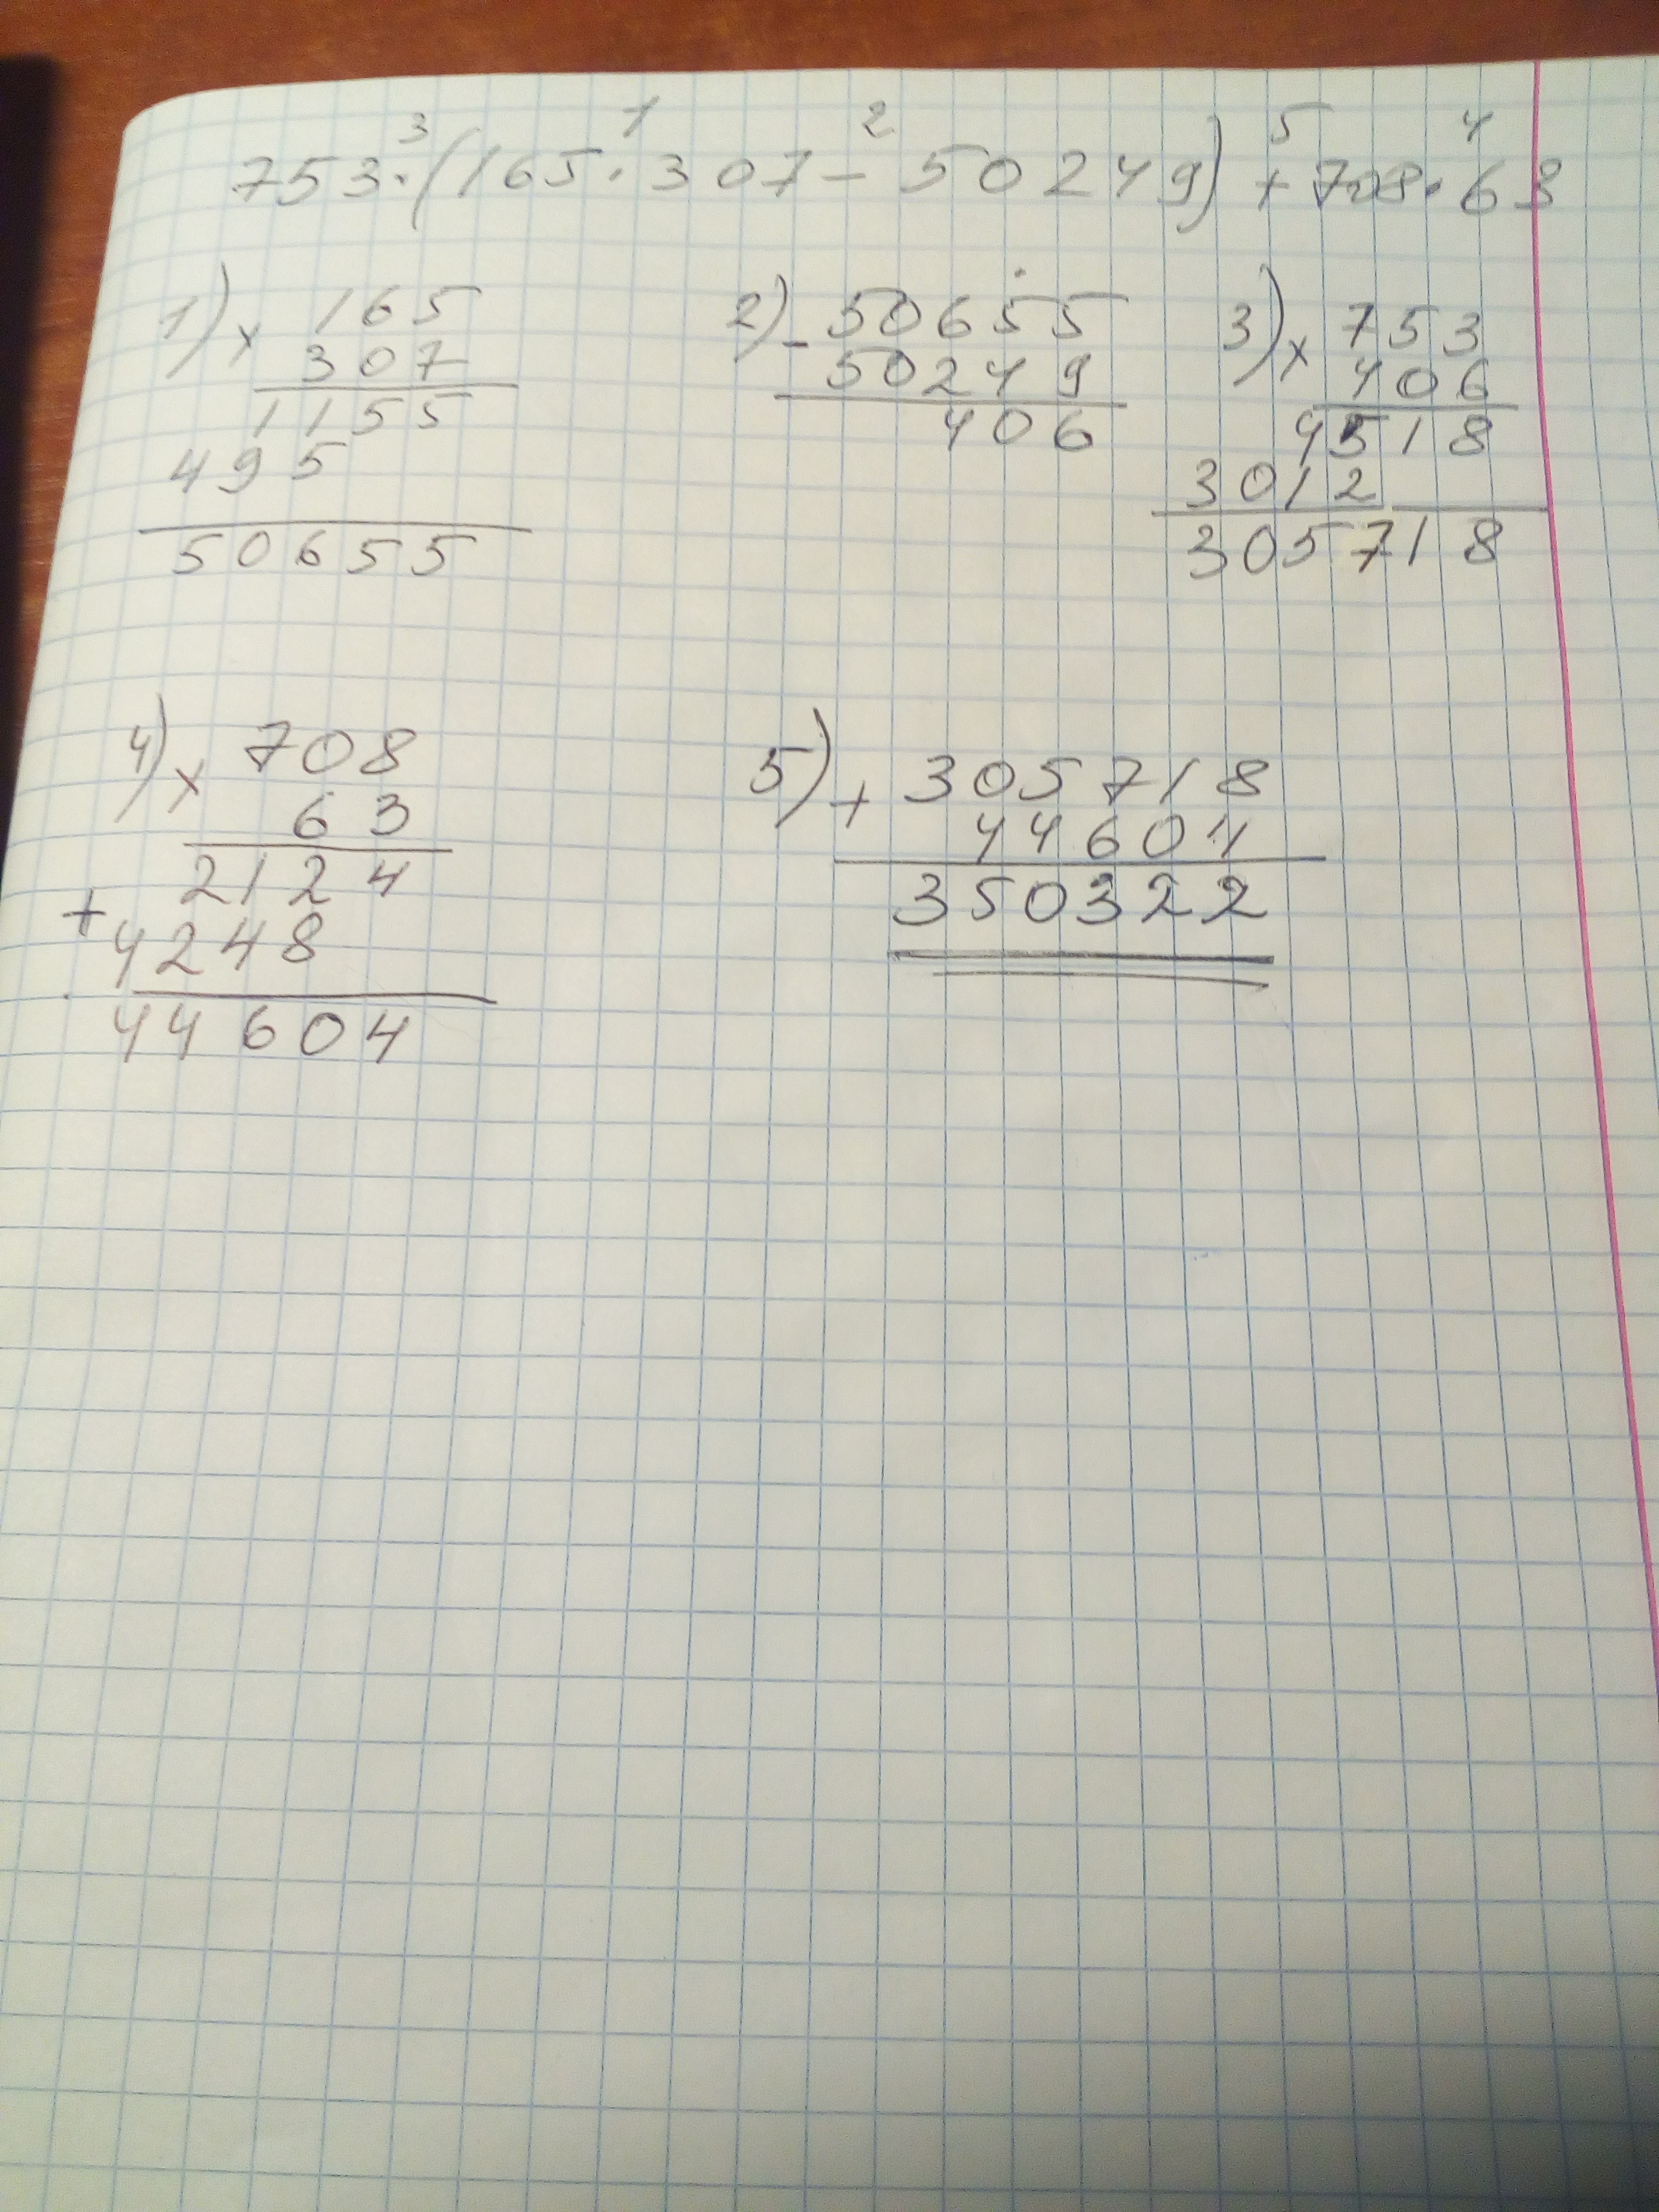 3 1 2 5 4
753·(165·307-50249)+708·63
1) × 165
307
1155
495
50655
2) - 50655
50249
406
3) × 753
406
4518
3012
305718
4) × 708
63
2124
+ 4248
44604
5) + 305718
44604
350322